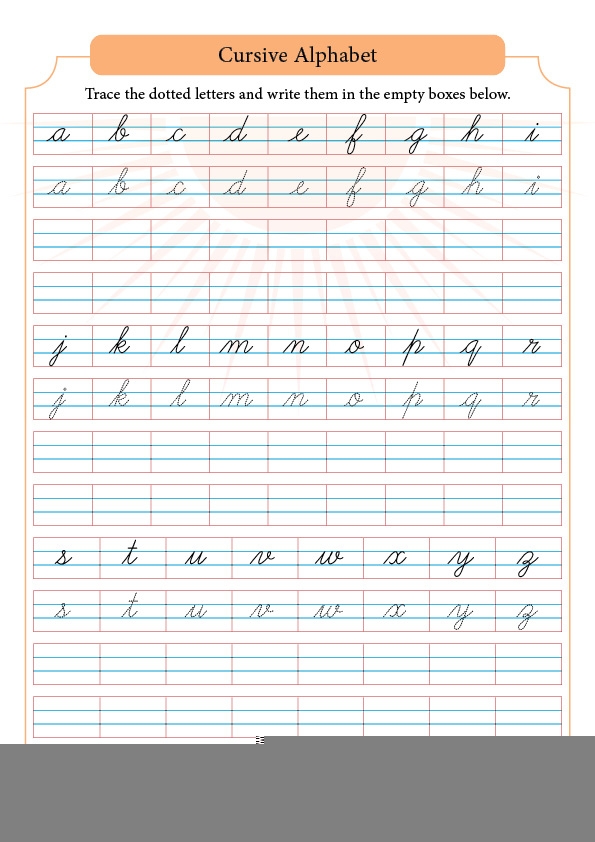 Cursive Alphabet
Trace the dotted letters and write them in the empty boxes below.
a b c d e f g h i
a b c d e f g h i
j k l m n o p q r
j k l m n o p q r
s t u v w x y z
s t u v w x y z